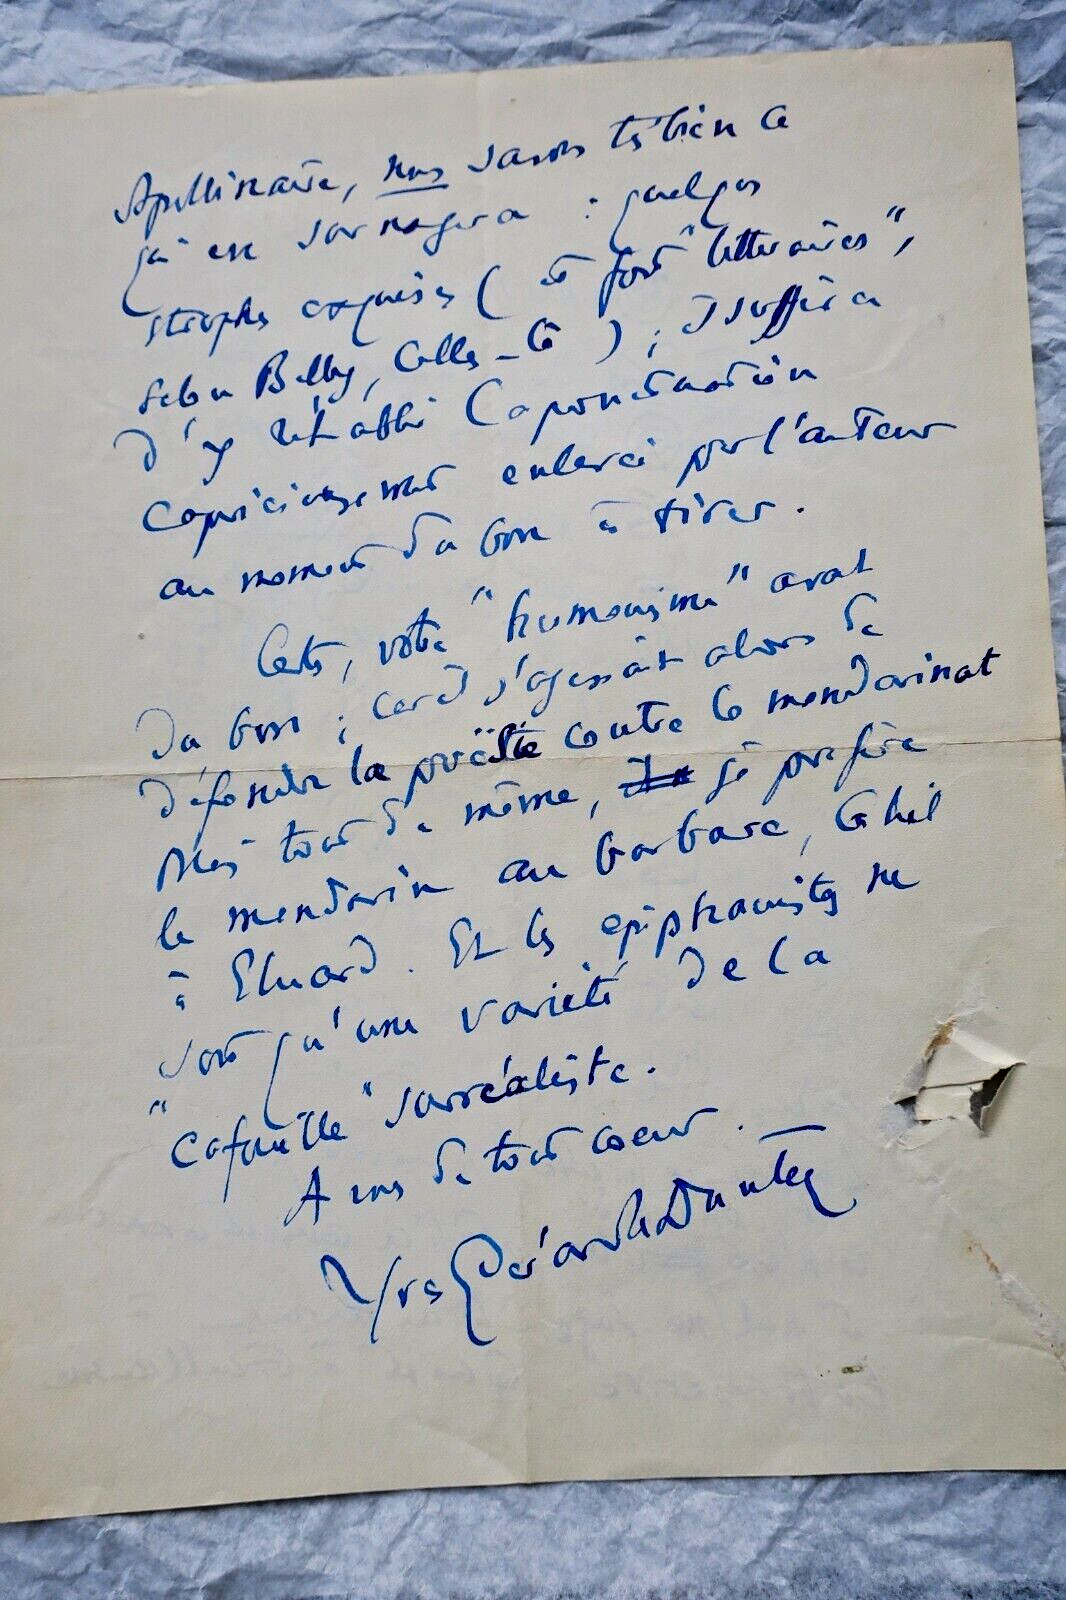 Apollinaire, nous savons très bien ce
qui en surnagera : quelques
strophes exquises ( et fort "littéraires",
selon Billy, celles-là ) ; il suffira
d'y rétablir la ponctuation
capricieusement enlevée par l'auteur
au moment du bon à tirer.
Certes, votre "humanisme" avait
du bon ; car il s'agissait alors de
défendre la poésie contre le mandarinat
Mais tout de même, je préfère
le mandarin au barbare, Ghil
à Eluard. Et les épiphanistes ne
sont qu'une variété de la
"cafouille" surréaliste.
A vous de tout coeur. —
Yves Gérard le Dantec